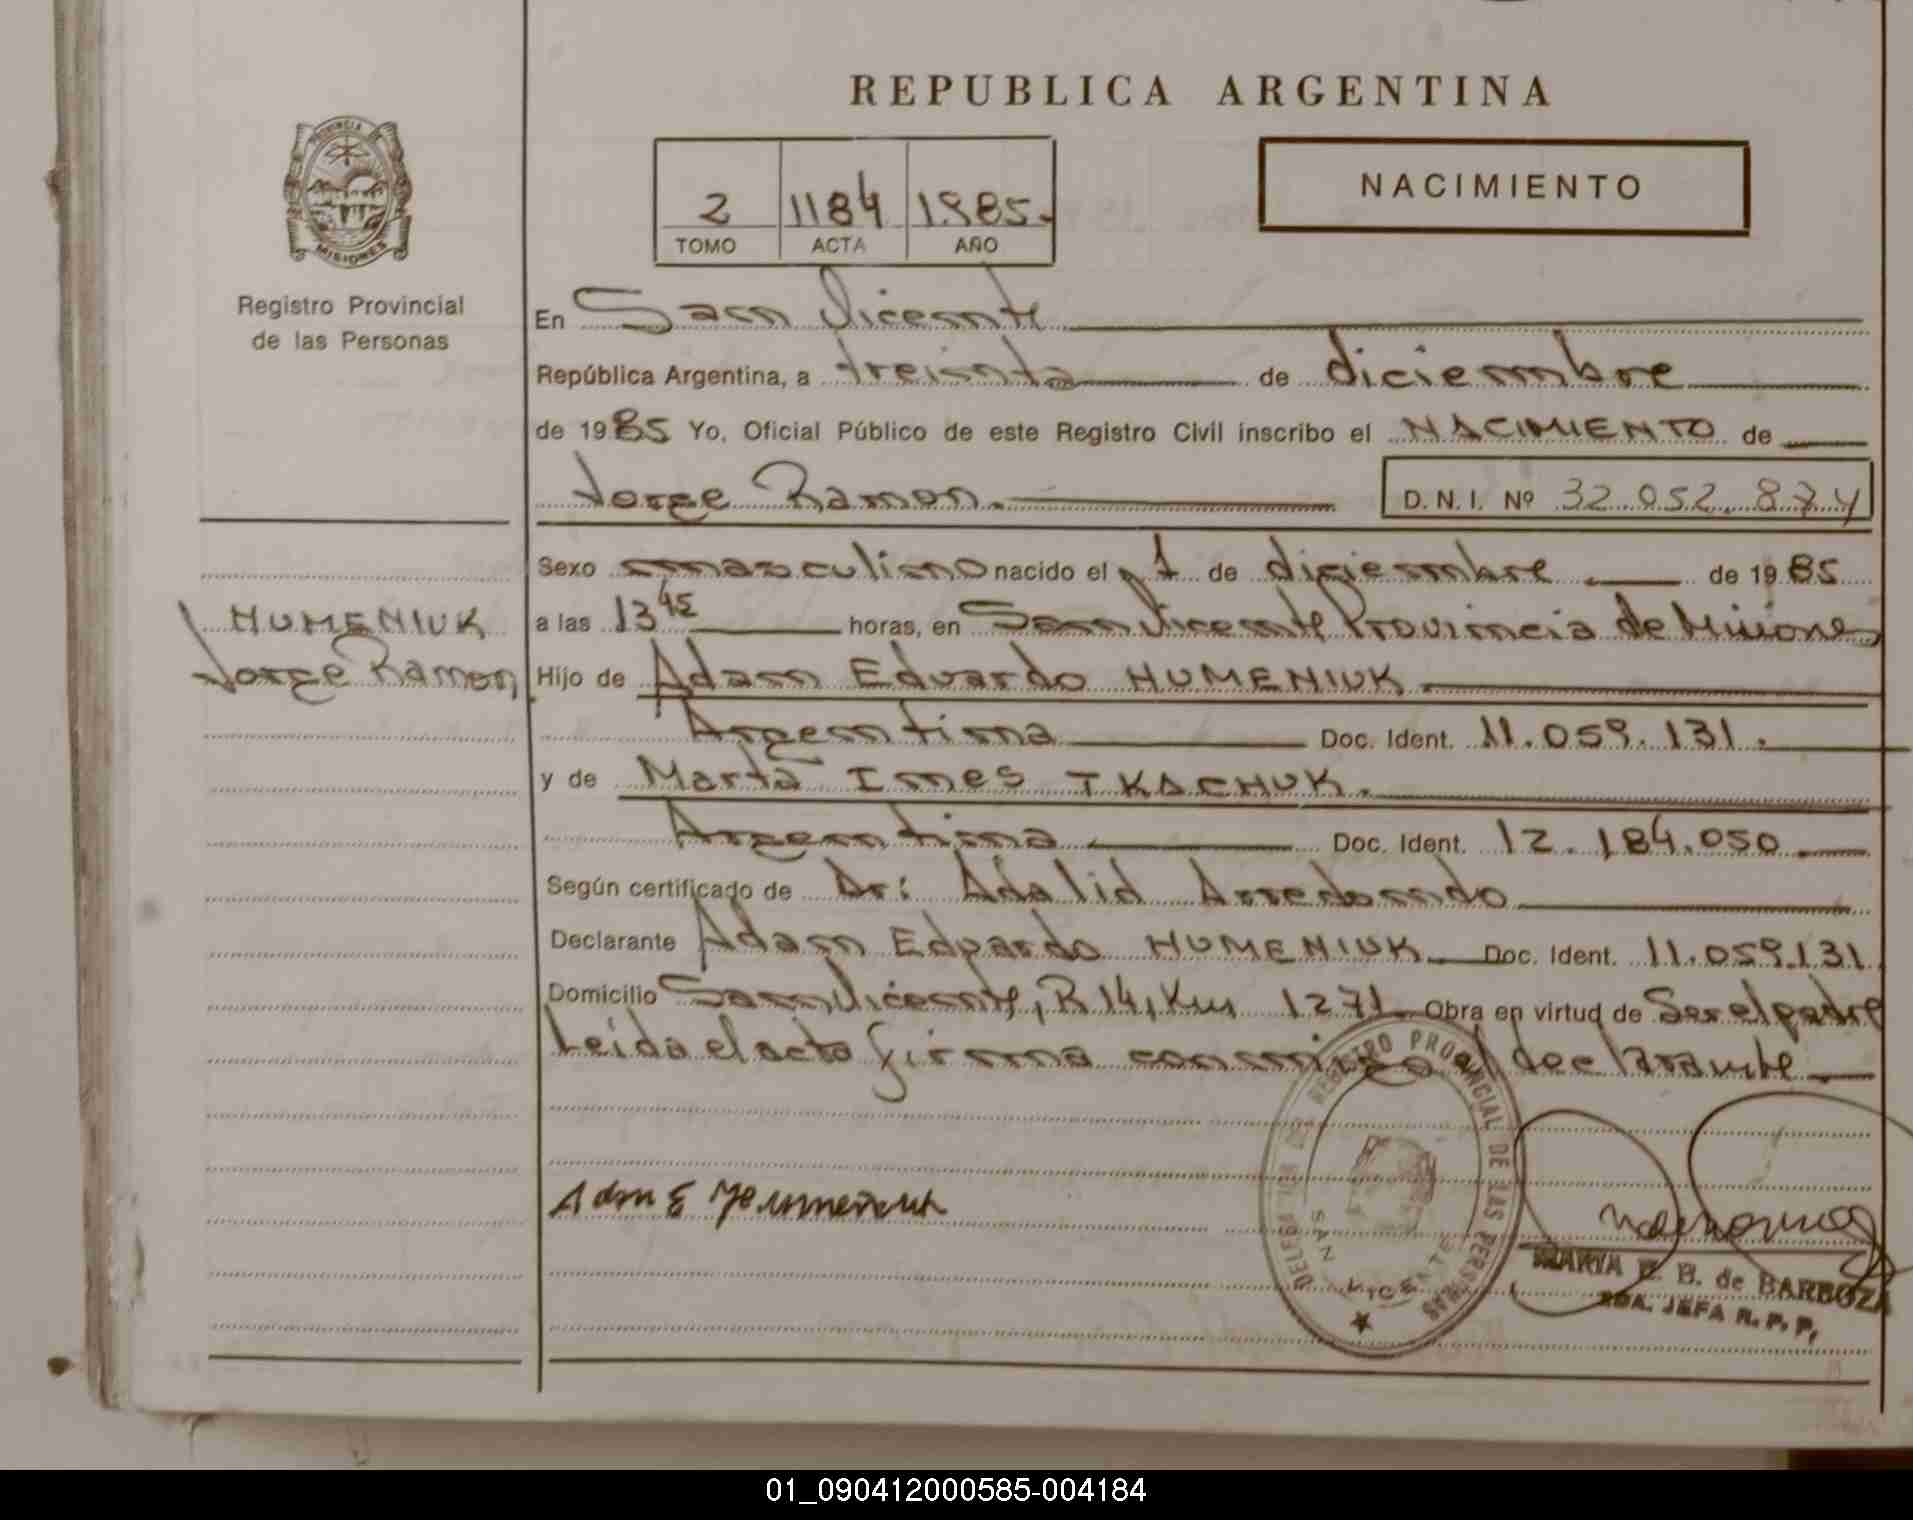 REPUBLICA ARGENTINA
PROVINCIA DE
MISIONES
Registro Provincial
de las Personas
2 1184 1985.
TOMO ACTA AÑO
NACIMIENTO
En San Vicente
República Argentina, a treinta de diciembre
de 1985 Yo, Oficial Público de este Registro Civil inscribo el NACIMIENTO de
Jorge Ramon.
D.N.I. Nº 32.052.874
Sexo masculino nacido el 1 de diciembre de 1985
HUMENIUK
Jorge Ramon
a las 13 45 horas, en San Vicente Provincia de Misiones
Hijo de Adam Eduardo HUMENIUK
Argentina Doc. Ident. 11.059.131.
y de Marta Ines TKACHUK.
Argentina Doc. Ident. 12.184.050
Según certificado de Dr: Adalid Arredondo
Declarante Adam Eduardo HUMENIUK Doc. Ident. 11.059.131
Domicilio San Vicente, R 14, Km 1271 Obra en virtud de Ser el padre
Leida el acta firma conmigo el declarante
Adm E Humeniuk
DELEGACION DEL REGISTRO PROVINCIAL DE LAS PERSONAS
SAN VICENTE
MARTA E. B. de BARBOZA
2DA. JEFA R. P. P.
01_090412000585-004184